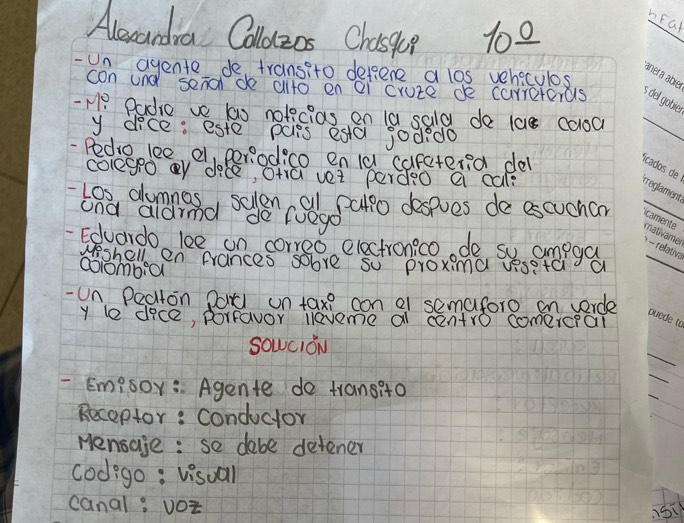 Alexandra Collazos Chasqui 10º
-Un agente de transito detiene a los vehiculos
con una señal de alto en el cruze de carreteras
-Mi Padre ve las noticias en la sala de la casa
y dice: este pais esta jodido
-Pedro lee el periodico en la cafeteria del
colegio y dice, otra vez perdio el cali
-Los alumnos salen al patio despues de escuchar
una alarma de fuego
-Eduardo lee un correo electronico de su amiga
Mishell en frances sobre su proxima visita a
colombia
-Un Peaton para un taxi con el semaforo en verde
y le dice, Porfavor lleveme al centro comercial
SOLUCIÓN
- Emisor: Agente de transito
Receptor: conductor
Mensaje: se debe detener
codigo: visual
canal: voz
anera abier
s del gobier
ficados de l
rreglamenta
icamente
mativamen
- relativa
puede